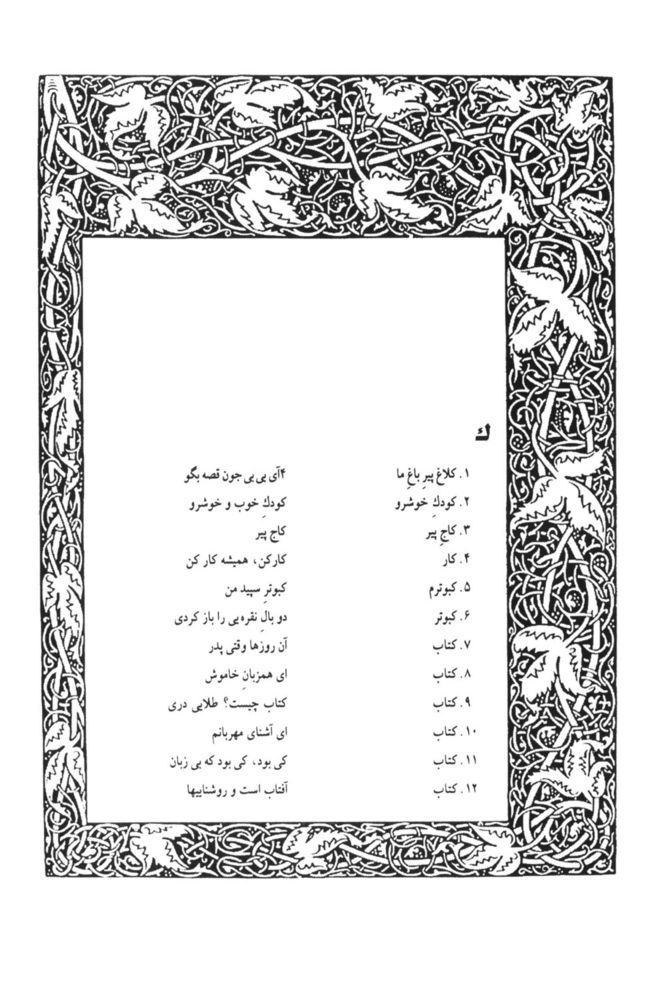 ك
۱. کلاغ پیرِ باغِ ما ۴آی بی بی جون قصه بگو
۲. کودكِ خوشرو کودكِ خوب و خوشرو
۳. کاجِ پیر کاج پیر
۴. کار کارکن، همیشه کار کن
۵. کبوترم کبوترِ سپید من
۶. کبوتر دو بالِ نقره‌یی را باز کردی
۷. کتاب آن روزها وقتی پدر
۸. کتاب ای همزبانِ خاموش
۹. کتاب کتاب چیست؟ طلایی دری
۱۰. کتاب ای آشنای مهربانم
۱۱. کتاب کی بود، کی بود که بی زبان
۱۲. کتاب آفتاب است و روشناییها